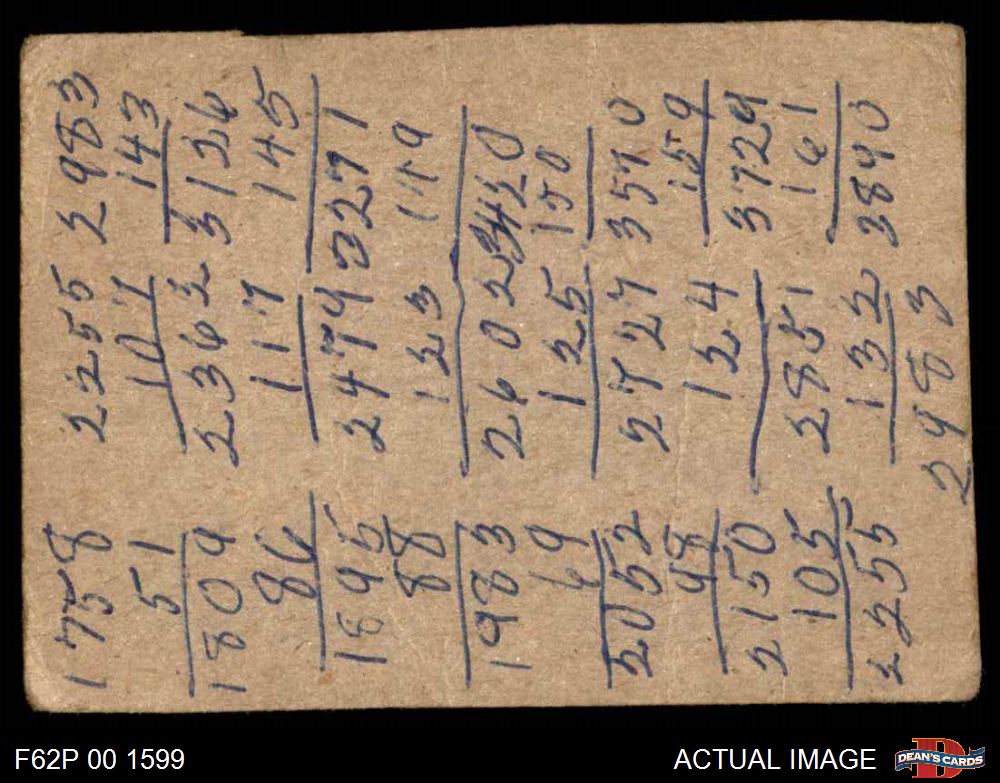 1758
51
1809
86
1895
88
1983
69
2052
98
2150
105
2255
2255
107
2362
117
2479
123
2602
125
2727
124
2851
132
2983
2983
143
3126
145
3271
149
3420
150
3570
159
3729
161
3890
F62P 00 1599
ACTUAL IMAGE
D
DEAN'S CARDS